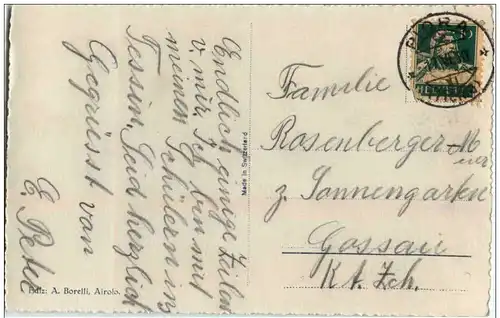 Endlich einige Zeilen
v. mir. Ich ben mit
meinen Schülern ins
Tessin. Seid herzlich
Gegrüsst von
E. Peter
Ediz: A. Borelli, Airolo.
Made in Switzerland
PIORA
HELVETIA
Familie
Rosenberger-M
z. Sonnengarten
Gossau
Kt. Zch.